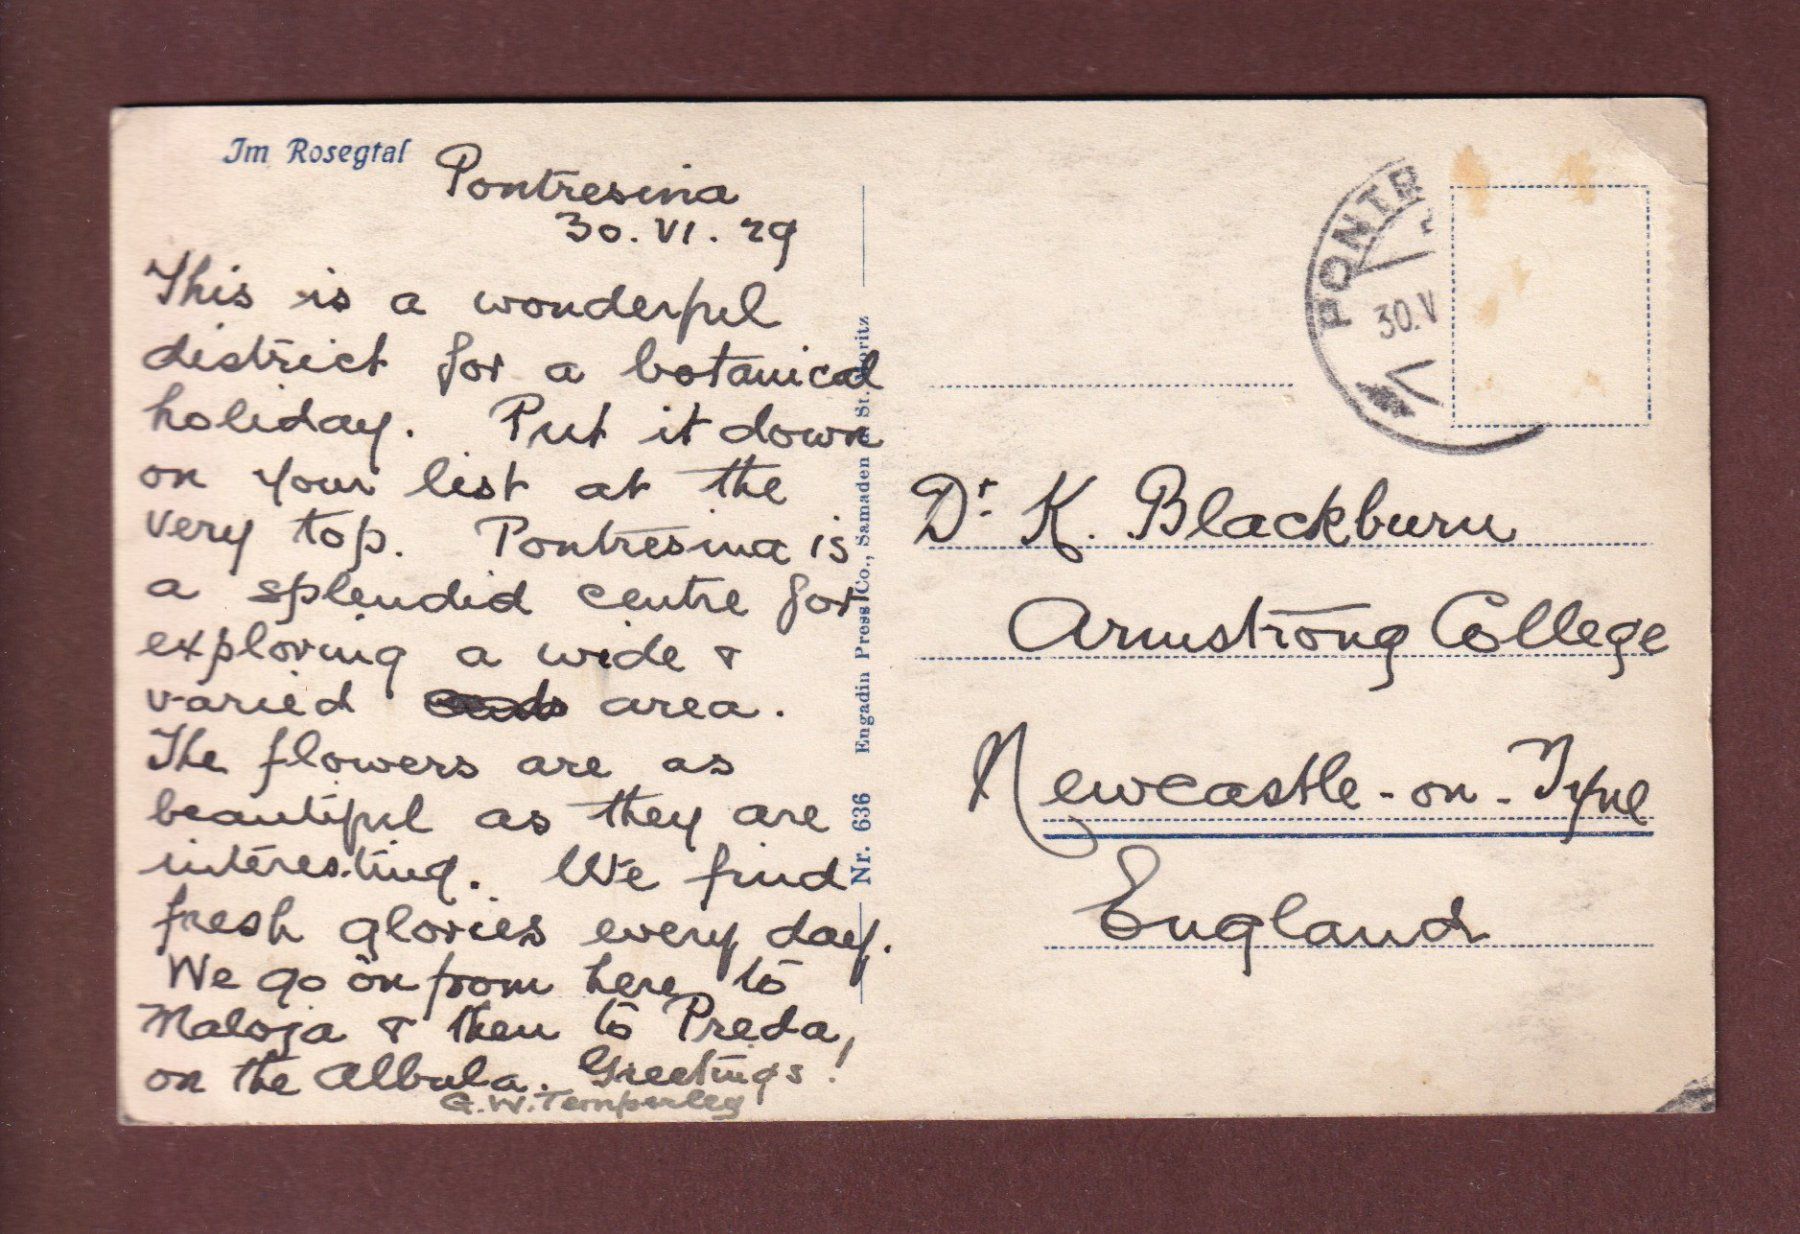 Im Rosegtal
Pontresina
30.VI.29
This is a wonderful
district for a botanical
holiday. Put it down
on your list at the
very top. Pontresina is
a splendid centre for
exploring a wide &
varied area.
The flowers are as
beautiful as they are
interesting. We find
fresh glories every day.
We go on from here to
Maloja & then to Preda,
on the Albula. Greetings!
G.W. Temperley
Nr. 636 Engadin Press Co., Samaden St. Moritz
PONTR
30.V
Dr. K. Blackburn
Armstrong College
Newcastle-on-Tyne
England